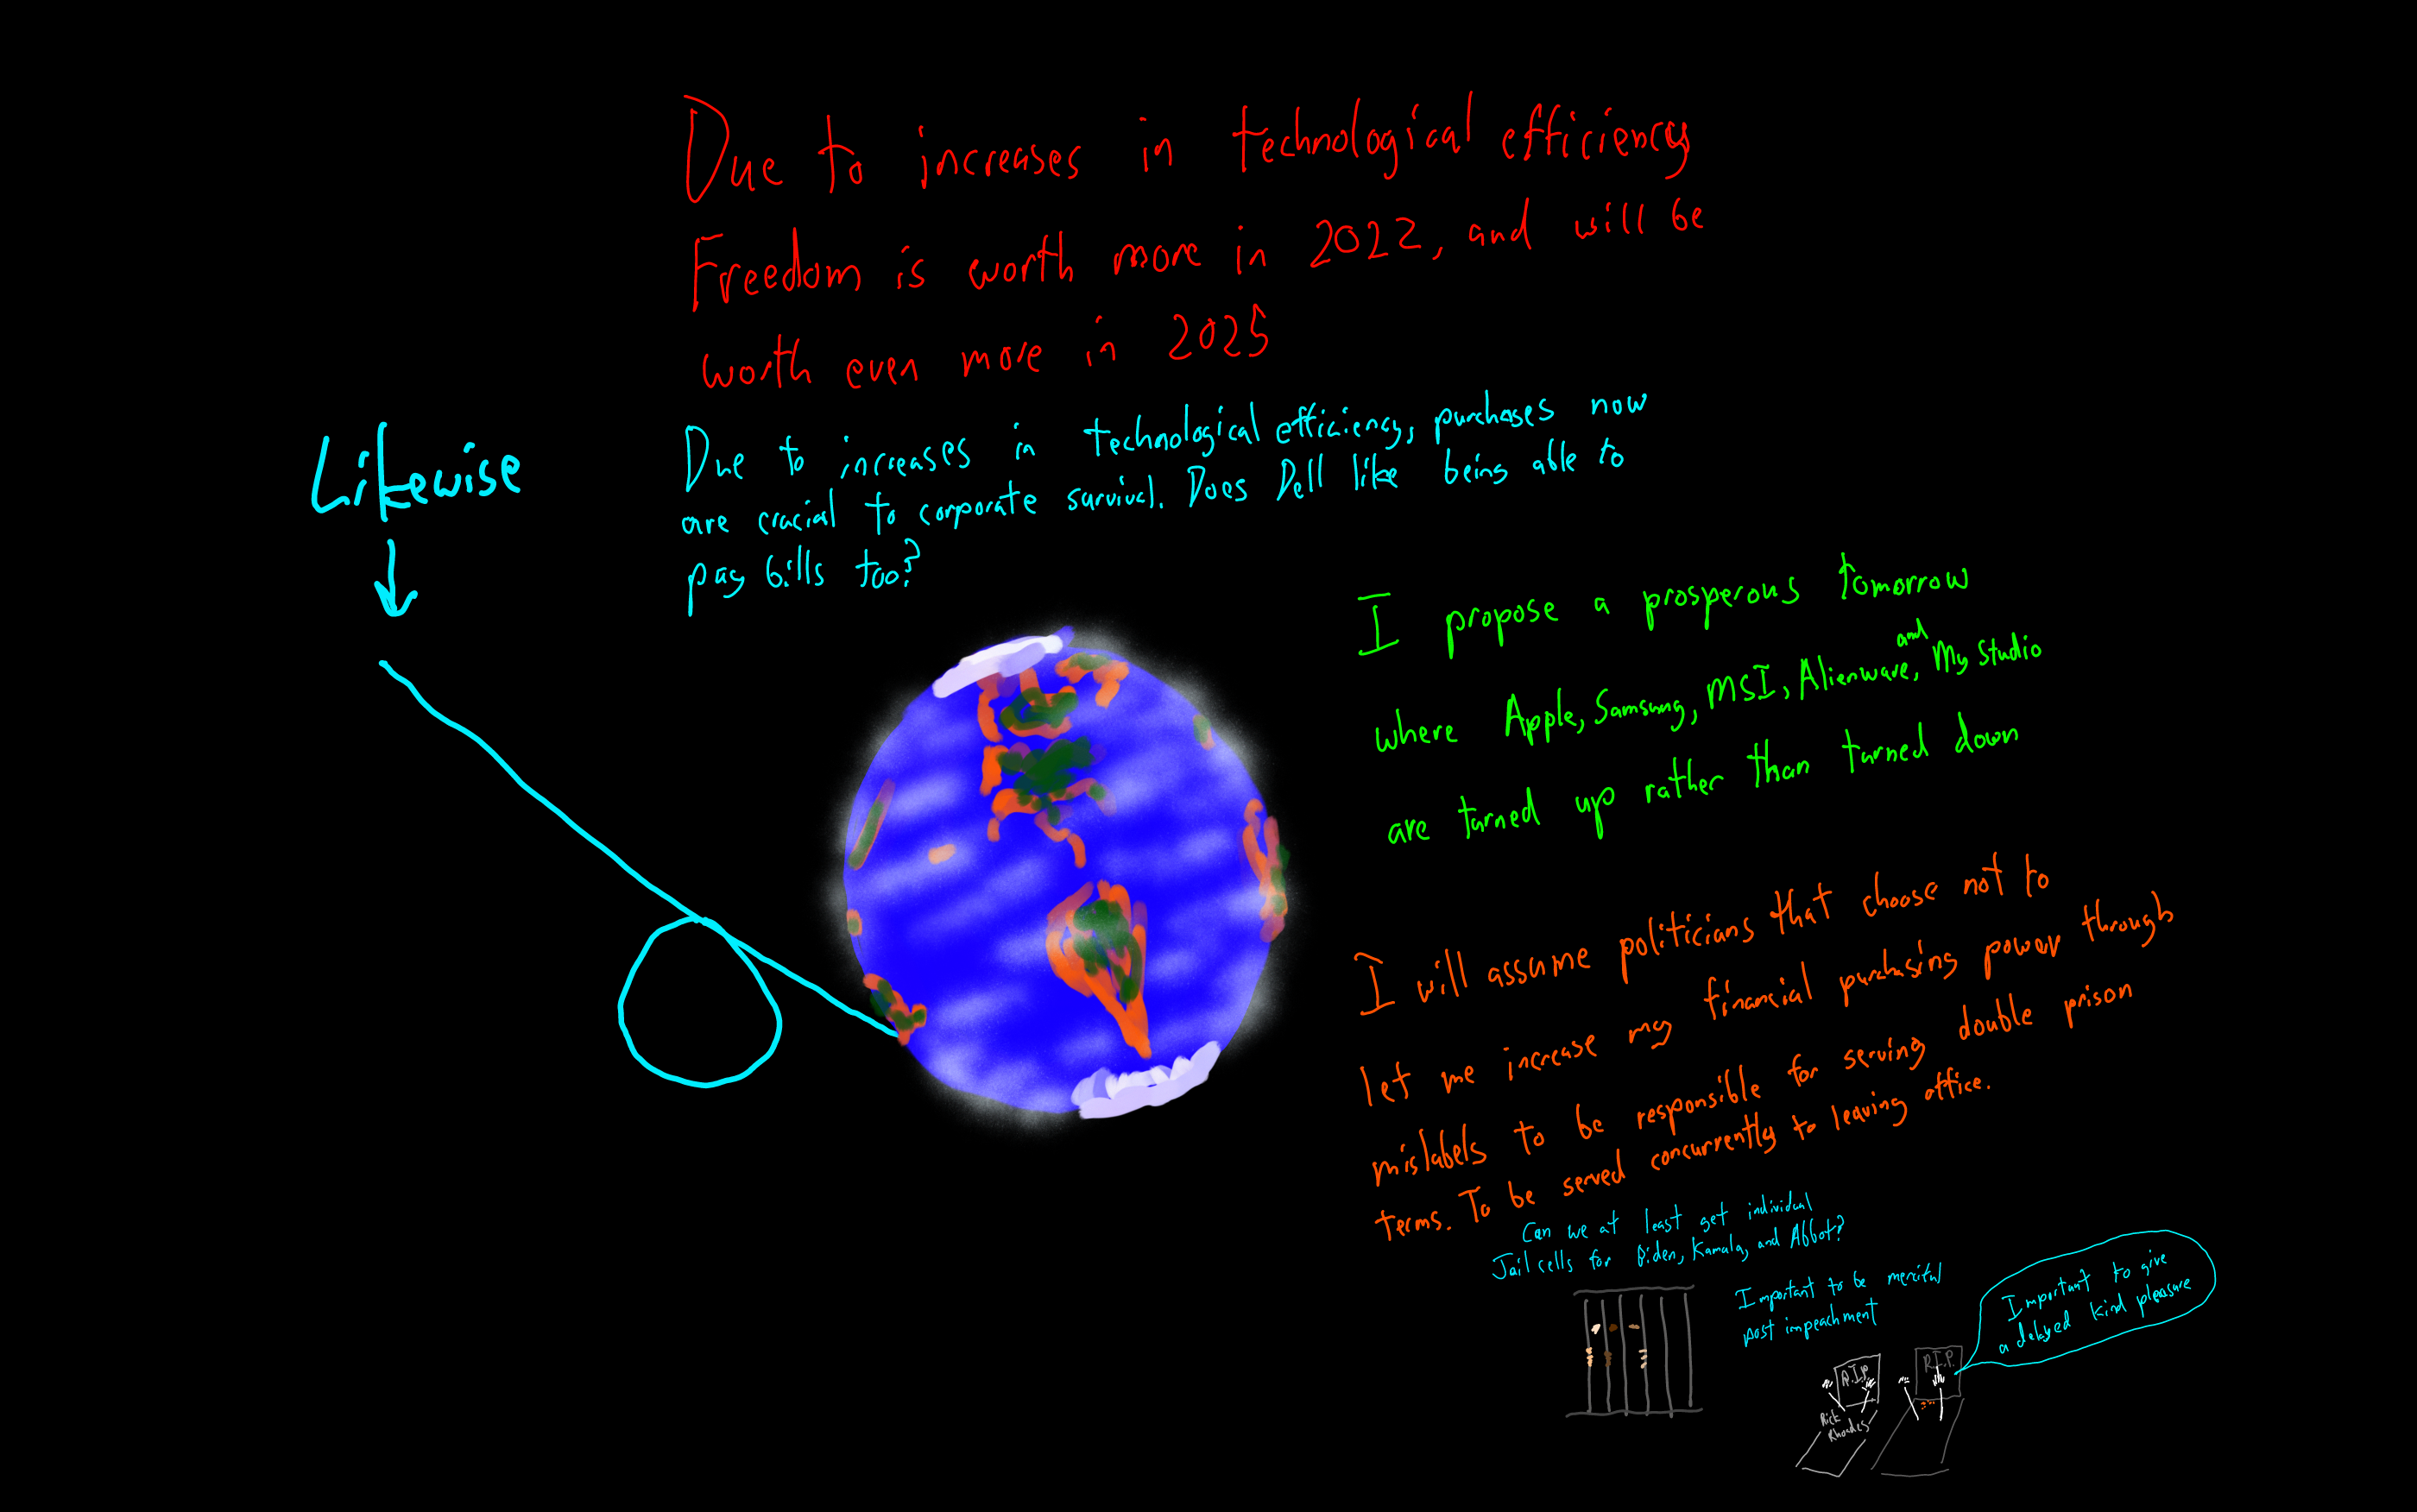 Due to increases in technological efficiency
Freedom is worth more in 2022, and will be
worth even more in 2025
Likewise
Due to increases in technological efficiency, purchases now
are crucial to corporate survival. Does Dell like being able to
pay bills too?
I propose a prosperous tomorrow
where Apple, Samsung, MSI, Alienware, and My Studio
are turned up rather than turned down
I will assume politicians that choose not to
let me increase my financial purchasing power through
mislabels to be responsible for serving double prison
terms. To be served concurrently to leaving office.
Can we at least get individual
Jail cells for Biden, Kamala, and Abbot?
Important to be merciful
post impeachment
Important to give
a delayed kind pleasure
R.I.P.
Rick
Rhoades
R.I.P.